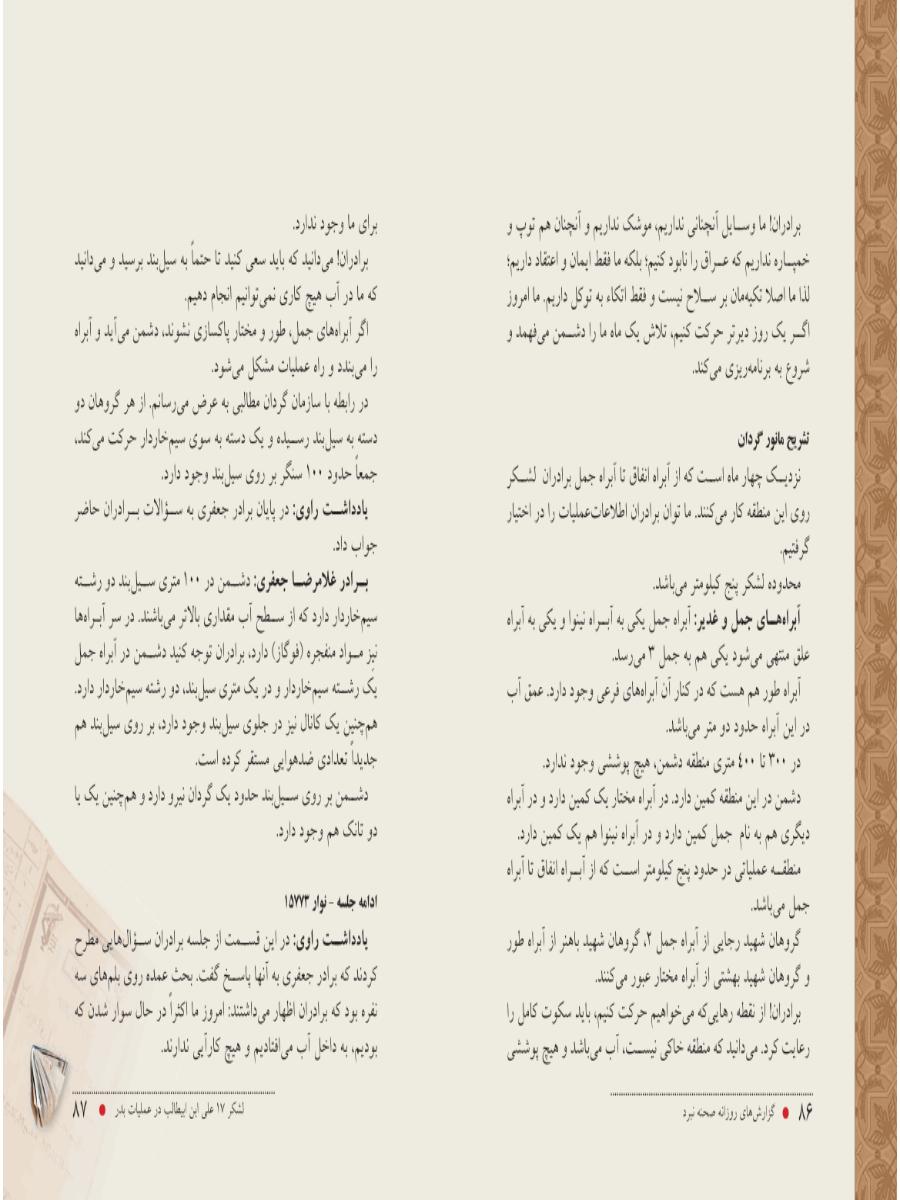 برادران! ما وسایل آنچنانی نداریم، موشک نداریم و آنچنان هم توپ و
خمپاره نداریم که عراق را نابود کنیم؛ بلکه ما فقط ایمان و اعتقاد داریم؛
لذا ما اصلا تکیه‌مان بر سلاح نیست و فقط اتکاء به توکل داریم. ما امروز
اگر یک روز دیرتر حرکت کنیم، تلاش یک ماه ما را دشمن می‌فهمد و
شروع به برنامه‌ریزی می‌کند.
تشریح مانور گردان
نزدیک چهار ماه است که از آبراه اتفاق تا آبراه جمل برادران لشکر
روی این منطقه کار می‌کنند. ما توان برادران اطلاعات‌عملیات را در اختیار
گرفتیم.
محدوده لشکر پنج کیلومتر می‌باشد.
آبراه‌های جمل و غدیر: آبراه جمل یکی به آبراه نینوا و یکی به آبراه
علق منتهی می‌شود یکی هم به جمل ۳ می‌رسد.
آبراه طور هم هست که در کنار آن آبراه‌های فرعی وجود دارد. عمق آب
در این آبراه حدود دو متر می‌باشد.
در ۳۰۰ تا ۴۰۰ متری منطقه دشمن، هیچ پوششی وجود ندارد.
دشمن در این منطقه کمین دارد. در آبراه مختار یک کمین دارد و در آبراه
دیگری هم به نام جمل کمین دارد و در آبراه نینوا هم یک کمین دارد.
منطقه عملیاتی در حدود پنج کیلومتر است که از آبراه اتفاق تا آبراه
جمل می‌باشد.
گروهان شهید رجایی از آبراه جمل ۲، گروهان شهید باهنر از آبراه طور
و گروهان شهید بهشتی از آبراه مختار عبور می‌کنند.
برادران! از نقطه رهایی‌که می‌خواهیم حرکت کنیم، باید سکوت کامل را
رعایت کرد. می‌دانید که منطقه خاکی نیست، آب می‌باشد و هیچ پوششی
۸۶ ● گزارش‌های روزانه صحنه نبرد
برای ما وجود ندارد.
برادران! می‌دانید که باید سعی کنید تا حتماً به سیل‌بند برسید و می‌دانید
که ما در آب هیچ کاری نمی‌توانیم انجام دهیم.
اگر آبراه‌های جمل، طور و مختار پاکسازی نشوند، دشمن می‌آید و آبراه
را می‌بندد و راه عملیات مشکل می‌شود.
در رابطه با سازمان گردان مطالبی به عرض می‌رسانم. از هر گروهان دو
دسته به سیل‌بند رسیده و یک دسته به سوی سیم‌خاردار حرکت می‌کند،
جمعاً حدود ۱۰۰ سنگر بر روی سیل‌بند وجود دارد.
یادداشت راوی: در پایان برادر جعفری به سؤالات برادران حاضر
جواب داد.
برادر غلامرضا جعفری: دشمن در ۱۰۰ متری سیل‌بند دو رشته
سیم‌خاردار دارد که از سطح آب مقداری بالاتر می‌باشند. در سر آبراه‌ها
نیز مواد منفجره (فوگاز) دارد، برادران توجه کنید دشمن در آبراه جمل
یک رشته سیم‌خاردار و در یک متری سیل‌بند، دو رشته سیم‌خاردار دارد.
هم‌چنین یک کانال نیز در جلوی سیل‌بند وجود دارد، بر روی سیل‌بند هم
جدیداً تعدادی ضدهوایی مستقر کرده است.
دشمن بر روی سیل‌بند حدود یک گردان نیرو دارد و هم‌چنین یک یا
دو تانک هم وجود دارد.
ادامه جلسه - نوار ۱۵۷۷۳
یادداشت راوی: در این قسمت از جلسه برادران سؤال‌هایی مطرح
کردند که برادر جعفری به آنها پاسخ گفت. بحث عمده روی بلم‌های سه
نفره بود که برادران اظهار می‌داشتند: امروز ما اکثراً در حال سوار شدن که
بودیم، به داخل آب می‌افتادیم و هیچ کارآیی ندارند.
لشکر ۱۷ علی ابن ابیطالب در عملیات بدر ● ۸۷